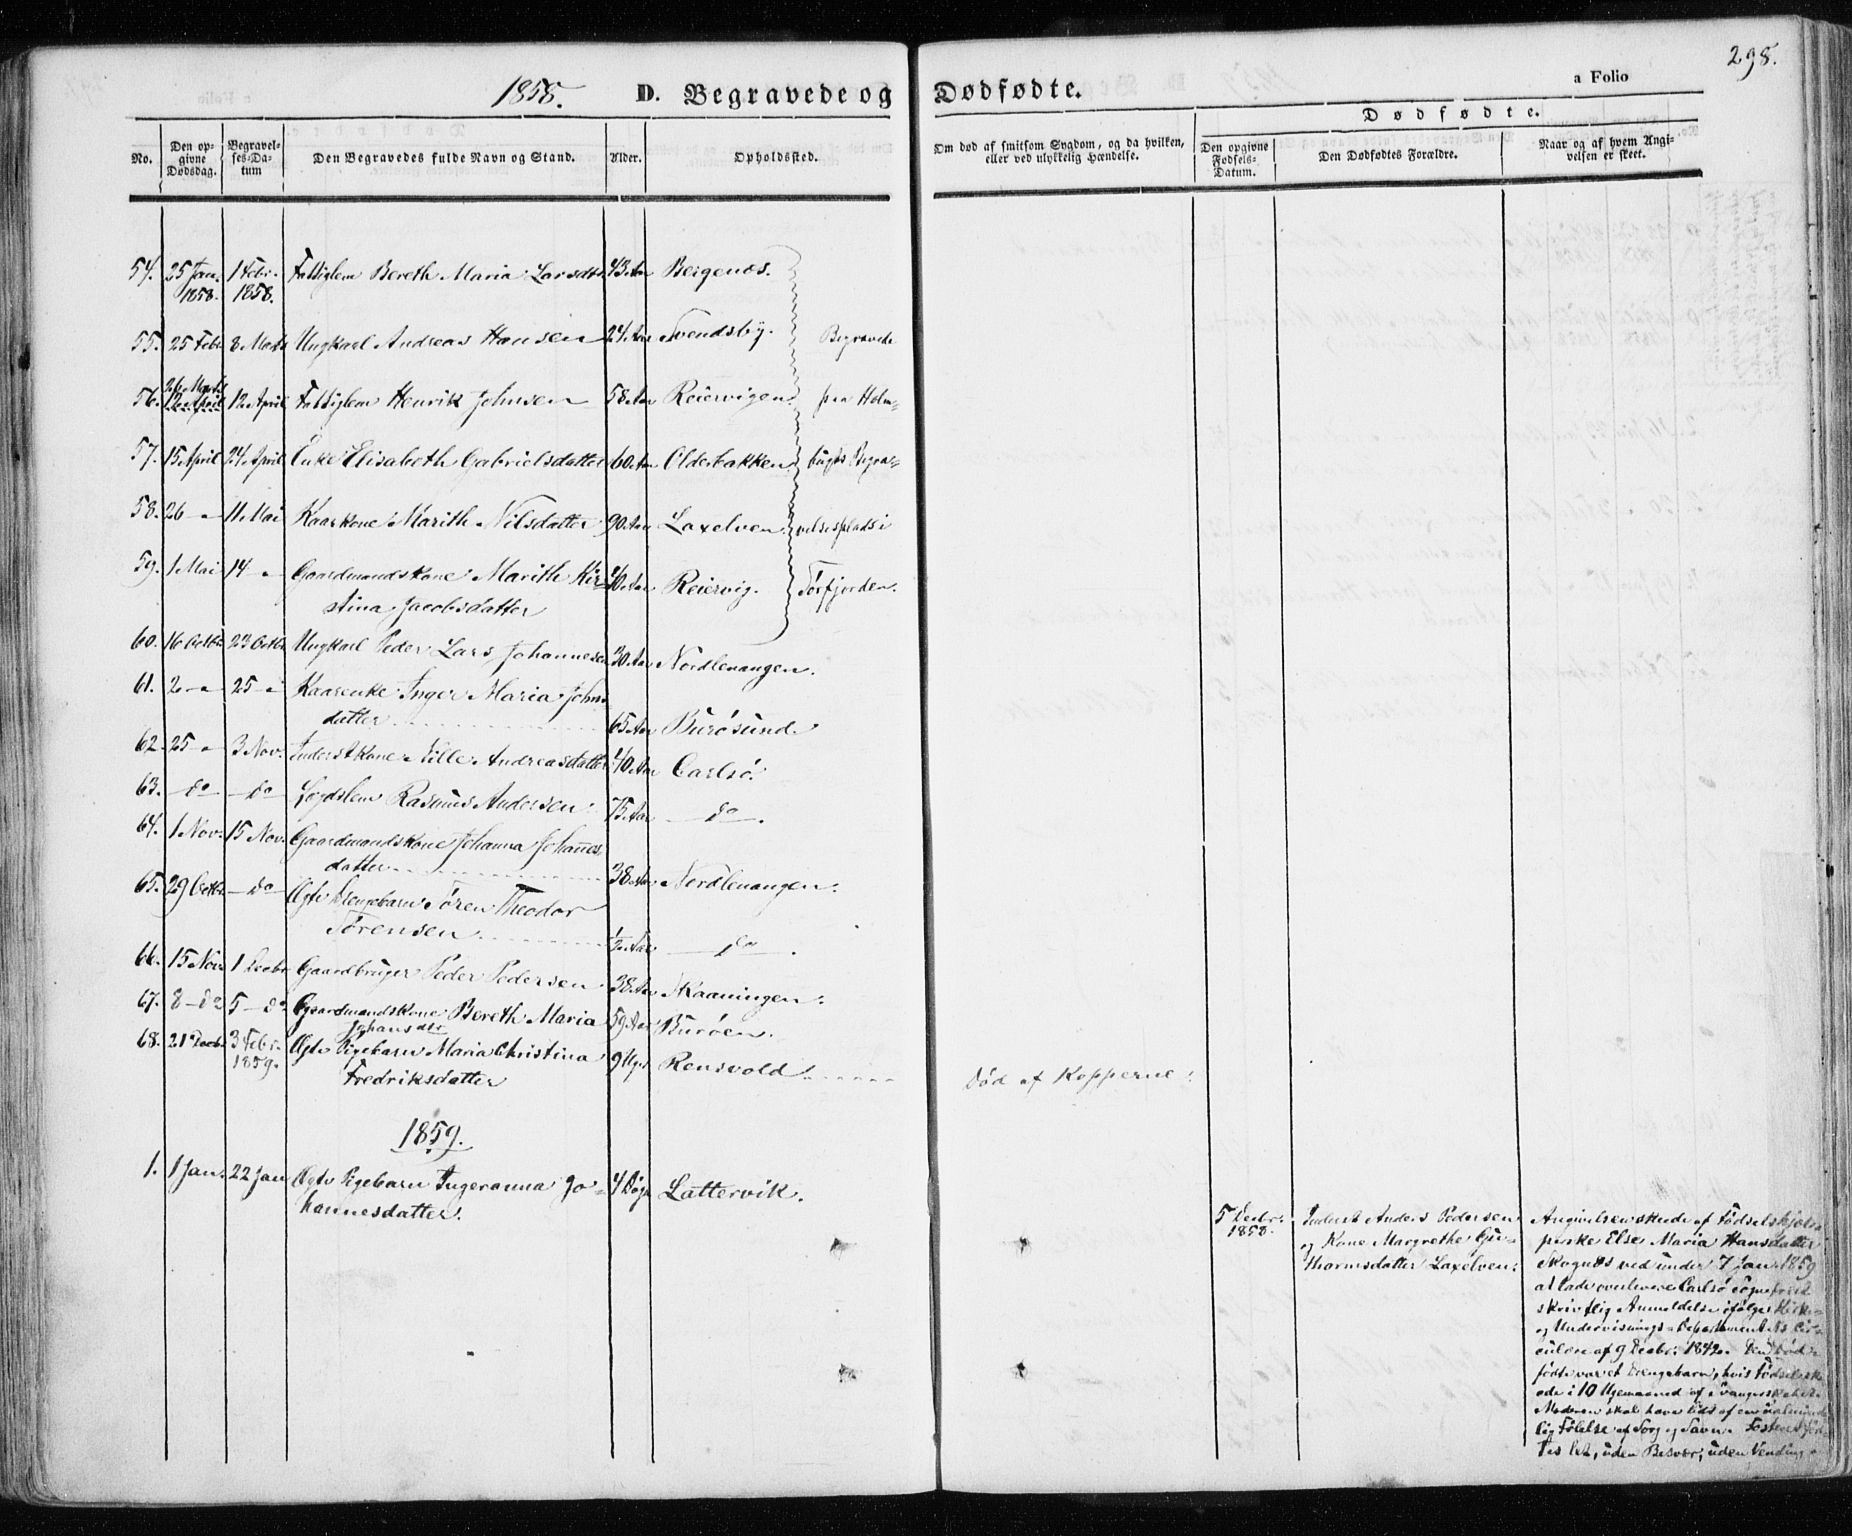 298.
1858. D. Begravede og Dødfødte. a Folio
Dødfødte.
No. Den opgivne Dødsdag. Begravelses-Datum Den Begravedes fulde Navn og Stand. Alder. Opholdssted. Om død af smitsom Sygdom, og da hvilken, eller ved ulykkelig Hændelse. Den opgivne Fødsels-Datum. Den Dødfødtes Forældre. Naar og af hvem Angivelsen er skeet.
54. 25 Jan. 1 Febr. Fattiglem Bereth Maria Larsdtr 43 Aar Bergenes.
1858. 1858.
55. 25 Febr 8 Marts Ungkarl Andreas Hansen 24 Aar Svendsby. Begravede
26 Marts
56. 12 April 12 April Fattiglem Henrik Johnsen 58 Aar Reiervigen paa Holm-
57. 15 April 24 April Enke Elisabeth Gabrielsdatter 60 Aar Olderbakken bugts Begra-
58. 26 - 11 Mai Kaarkone Marith Nilsdatter 90 Aar Laxelven velsesplads i
59. 1 Mai 14 - Gaardmandskone Marith Kir- 40 Aar Reiervig. Sørfjorden.
stina Jacobsdatter
60. 16 Octbr. 23 Octbr Ungkarl Peder Lars Johannesen 30 Aar Nordlenangen.
61. 2 - 25 - Kaarenke Inger Maria Johns
datter 65 Aar Burøsund
62. 25 - 3 Nov. Inderstkone Sille Andreasdatter 40 Aar Carlsö.
63. do do Lægdslem Rasmus Andersen 75 Aar do.
64. 1 Nov. 15 Nov. Gaardmandskone Johanna Johannes
datter 38 Aar Nordlenangen.
65. 29 Octbr do Ægte Drengebarn Sören Theodor
Sörensen ½ Aar do.
66. 15 Nov. 1 Decbr Gaardbruger Peder Pedersen 38 Aar Skaaningen.
67. 8 do 5 do Gaardmandskone Bereth Maria 59 Aar Buröen.
Johansdtr
68. 21 Decbr. 3 Febr. Ægte Pigebarn Maria Christina 9 Uger Rensvold
1859. Fredriksdatter Död af Kopperne.
1859.
1. 1 Jan. 22 Jan Ægte Pigebarn Ingeranna Jo- 4 Døgn Lattervik.
hannesdatter.
5 Decbr. Inderst Anders Pedersen Angivelsen skede af Födselshjelp
1858. og Kone Margrethe Gu- perske Else Maria Hansdatter
thormsdatter Laxelven. Skognæs ved under 7 Jan. 1859
at lade overlevere Carlsö Sognepræst
skriftlig Anmeldelse ifölge Kirke-
og Undervisnings-Departementets Cir-
culære af 9 Decbr. 1842. Den Död-
födte var et Drengebarn, hvis Födsel sk
ede i 10 Ugemaaned af Svangerskabet.
Moderen skal have lidt af en ualminde
lig Følelse af Sorg og Savn. Fosteret föd
tes let, uden Besvær, uden Vending